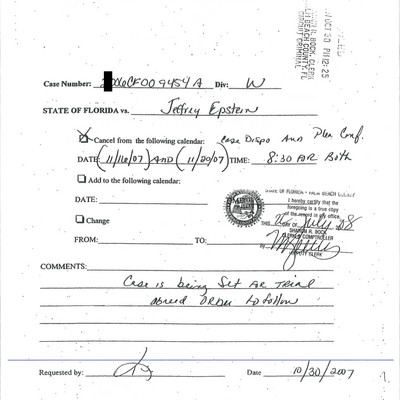 07 OCT 30 PM 12:25
SHARON R. BOCK, CLERK
PALM BEACH COUNTY, FL
CIRCUIT CRIMINAL
Case Number: 2006CF009454A Div: W
STATE OF FLORIDA vs. Jeffrey Epstein
Cancel from the following calendar: Case Dispo And Plea Conf.
DATE: (11/16/07) AND (11/20/07) TIME: 8:30 For Both
Add to the following calendar:
DATE:
STATE OF FLORIDA • PALM BEACH COUNTY
I hereby certify that the
foregoing is a true copy
of the record in my office.
Change
THIS DAY OF July 08
SHARON R. BOCK
CLERK & COMPTROLLER
FROM: TO:
By
DEPUTY CLERK
COMMENTS:
Case is being Set For Trial
agreed Order to follow
Requested by: Date 10/30/2007